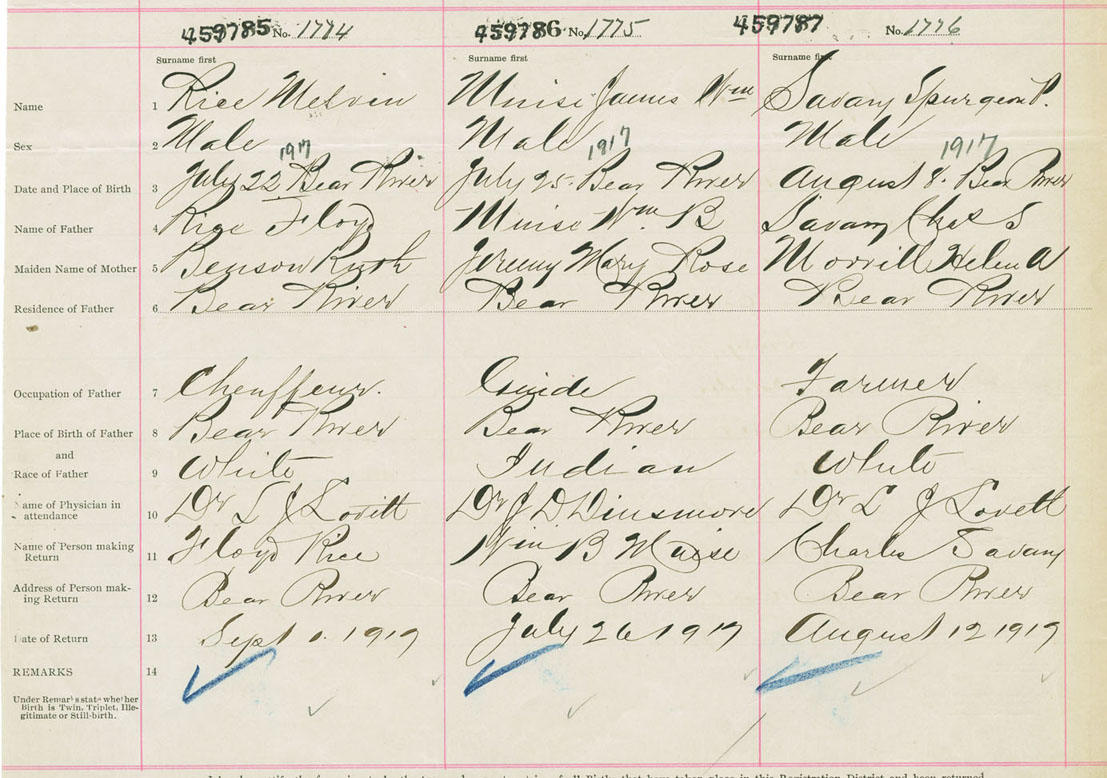 459785 No. 1774 459786 No. 1775 459787 No. 1776
Surname first Surname first Surname first
Name 1 Rice Melvin Muise James Wm Savary Spurgeon P.
Sex 2 Male Male Male
1917 1917 1917
Date and Place of Birth 3 July 22 Bear River July 25. Bear River August 8. Bear River
Name of Father 4 Rice Floyd Muise Wm. B Savary Chas S
Maiden Name of Mother 5 Benson Ruth Jeremy Mary Rose Morrill Helen A
Residence of Father 6 Bear River Bear River Bear River
Occupation of Father 7 Chauffeur. Guide Farmer
Place of Birth of Father 8 Bear River Bear River Bear River
and
Race of Father 9 White Indian White
Name of Physician in
attendance 10 Dr L J Lovitt Dr J D Dinsmore Dr L J Lovett
Name of Person making
Return 11 Floyd Rice Wm B Muise Charles Savary
Address of Person mak-
ing Return 12 Bear River Bear River Bear River
Date of Return 13 Sept 1. 1917 July 26 1917 August 12 1917
REMARKS 14
Under Remarks state whether
Birth is Twin, Triplet, Ille-
gitimate or Still-birth.
of all Births that have taken place in this Registration District and been returned